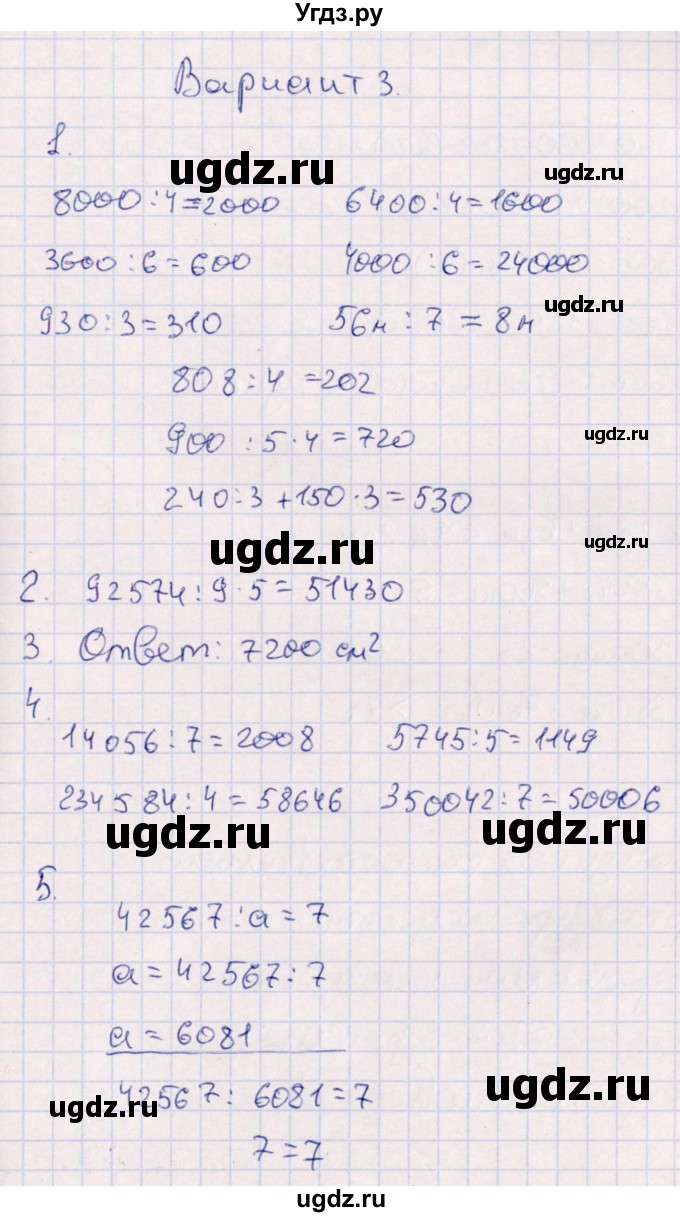 Угдз.ру
Вариант 3.
1.
ugdz.ru ugdz.ru
8000 : 4 = 2000 6400 : 4 = 1600
3600 : 6 = 600 4000 : 6 = 24000
ugdz.ru
930 : 3 = 310 56н : 7 = 8н
808 : 4 = 202
900 : 5 · 4 = 720 ugdz.ru
240 : 3 + 150 · 3 = 530
ugdz.ru ugdz.ru
2. 92574 : 9 · 5 = 51430
3. Ответ: 7200 см²
4.
14056 : 7 = 2008 5745 : 5 = 1149
234584 : 4 = 58646 350042 : 7 = 50006
ugdz.ru ugdz.ru
5.
42567 : a = 7
a = 42567 : 7
a = 6081
ugdz.ru ugdz.ru
42567 : 6081 = 7
7 = 7
ugdz.ru